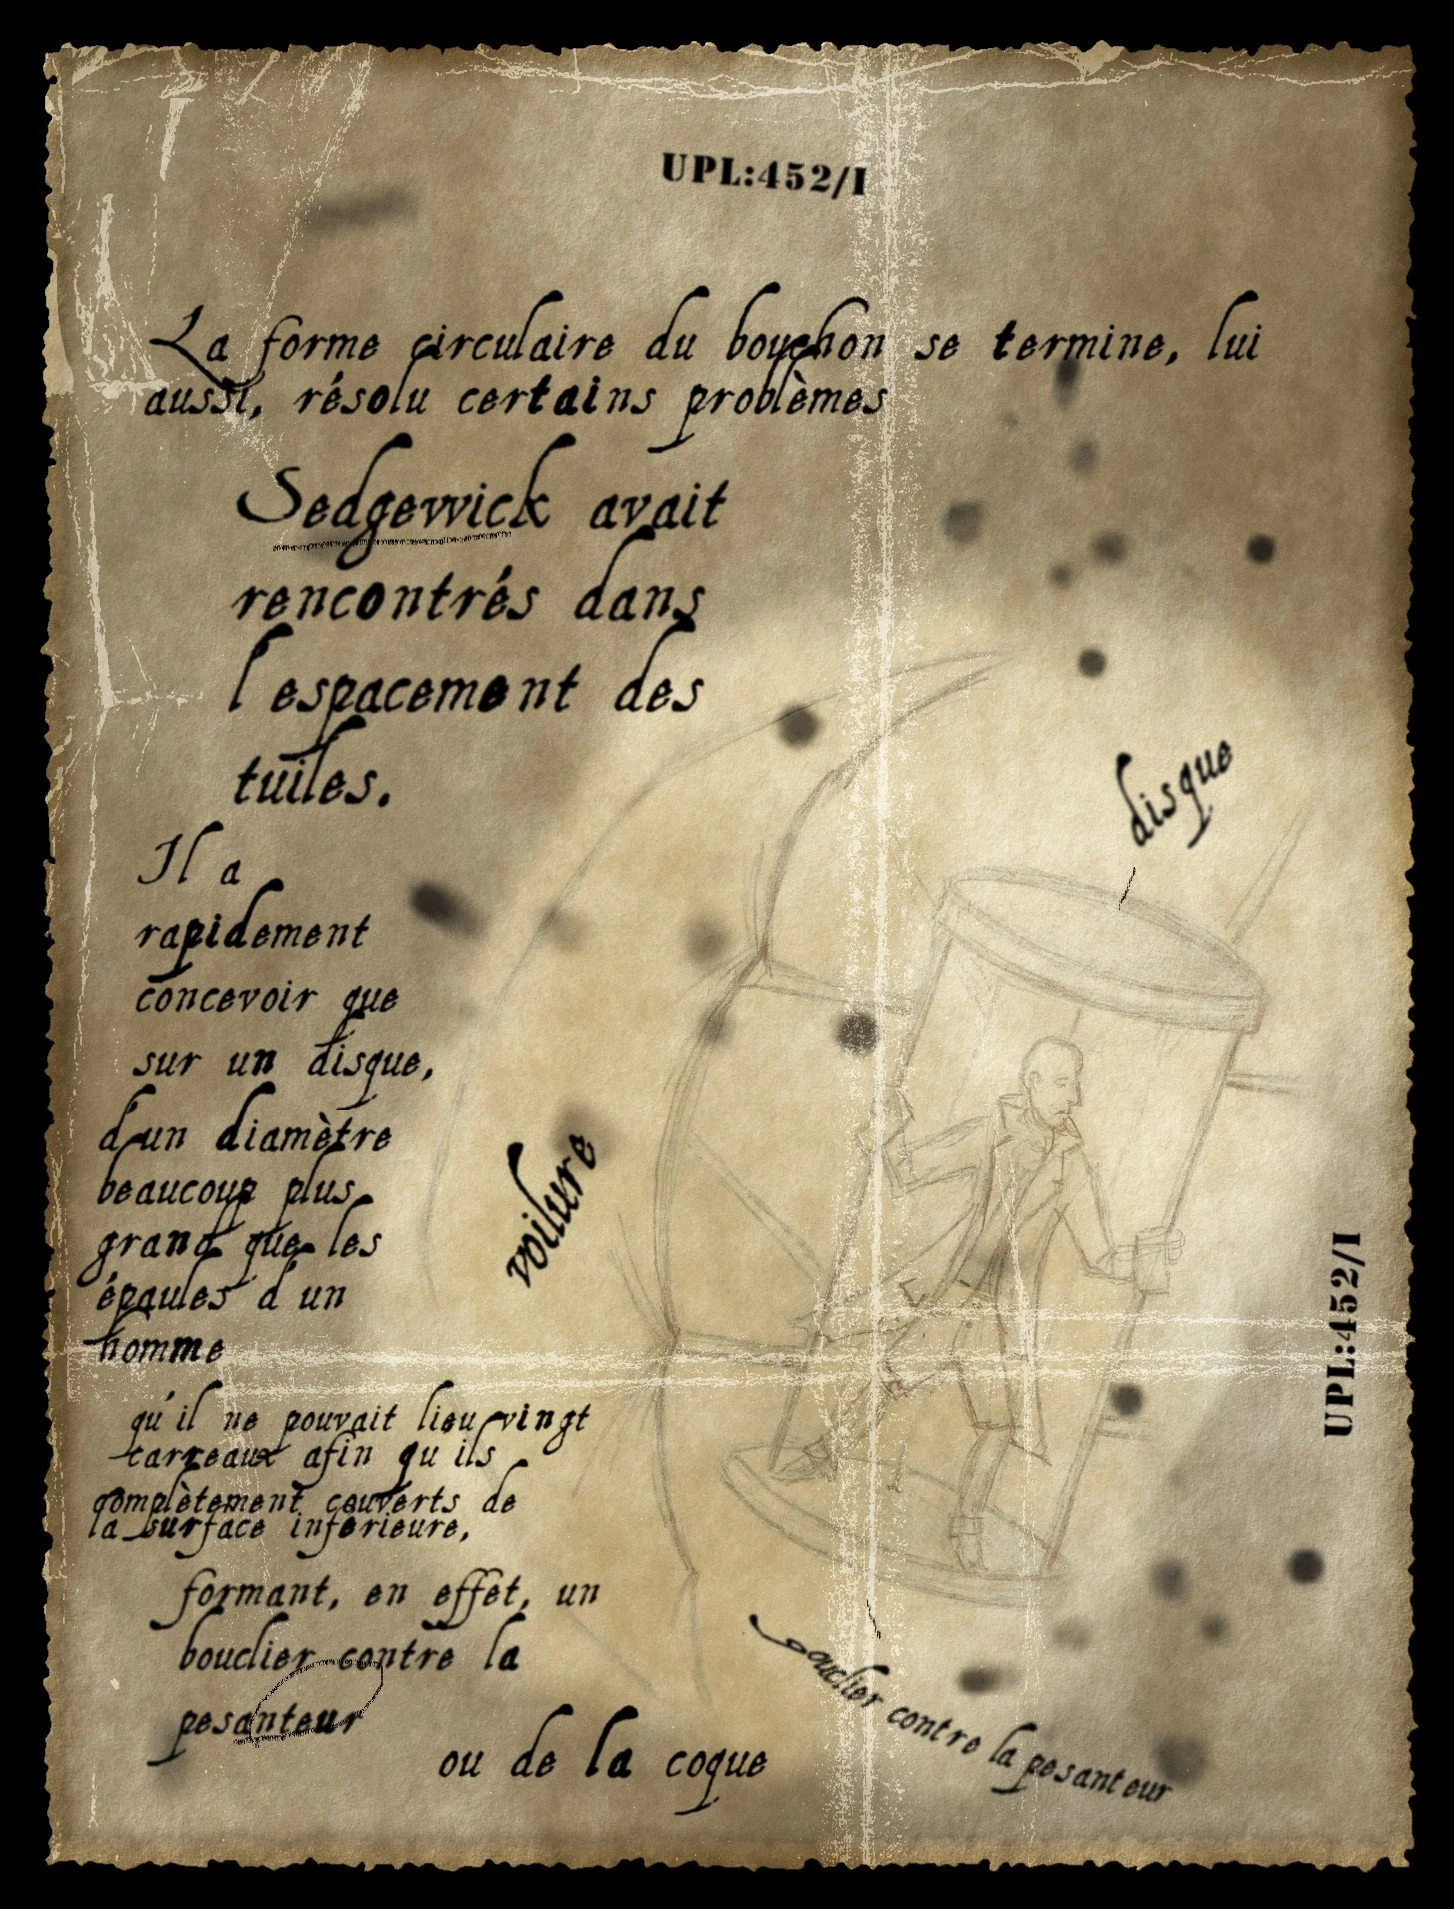 UPL:452/I
La forme circulaire du bouchon se termine, lui
aussi, résolu certains problèmes
Sedgewick avait
rencontrés dans
l'espacement des
tuiles.
Il a
rapidement
concevoir que
sur un disque,
d'un diamètre
beaucoup plus
grand que les
épaules d'un
homme
qu'il ne pouvait lieu vingt
carreaux afin qu'ils
complètement couverts de
la surface inférieure,
formant, en effet, un
bouclier contre la
pesanteur
ou de la coque
disque
voilure
bouclier contre la pesanteur
UPL:452/I